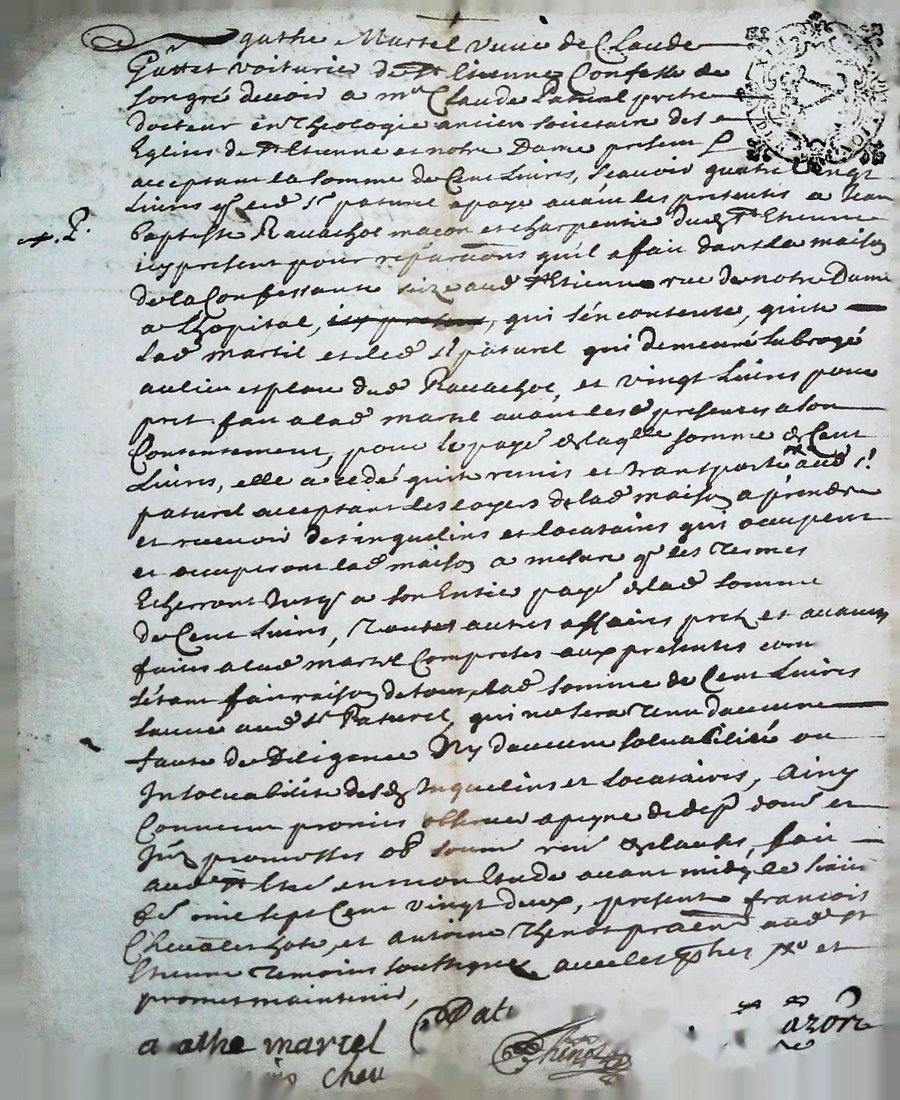 Agathe Martel veuve de Claude
Gattet voiturie de St Etienne Confesse de
son gré devoir a mre Claude Paturel pretre
docteur en Theologie ancien societaire des
Eglises de St Etienne et notre Dame present
acceptant la somme de Cent Livres, scavoir quatre vingt
Livres q led sr paturel a payé avant les presentes a Jean
baptiste Ravachol macon et charpentie dud St Etienne
icy present pour reparaons qu'il a fait dans la maison
de la Confessante size aud St Etienne rue de notre Dame
a Lhopital, icy present, qui s'en contente, quitte
lad martel et led sr paturel qui demeure subrogé
au lieu et place dud Ravachol, et vingt Livres pour
pret fait a lad martel avant les presentes a son
Contentement, pour le paye de laqlle somme de Cent
Livres, elle a cedé quitté remis et transporté aud sr
paturel acceptant les loyers de lad maison a prendre
et recevoir des inquelins et locataires qui occupent
et occuperont lad maison a mesure q les termes
Echerront Jusq a son Entie paye de lad somme
de Cent Livres, Toutes autres affaires pretz et avances
faites a lad martel Comprises aux presentes
s'etant fait raison de tout, lad somme de Cent Livres
sauve aud sr Paturel, qui ne sera Tenu daucune
faute de Diligence Ny daucune solvabilité ou
Insolvabilité desd Inquelins et Locataires, Ainsy
Convenu promis observer a peyne de dep
promettes ob soum ren clauses, fait
aud St Etne en mon Etude avant midy le
mil sept Cent vingt deux, present francois
Chevalier hote, et antoine Thenot praen aud St
Etienne Temoins soussignez avec les
promet maintenir,
a athe martel Pat
Thenot
azor
chev